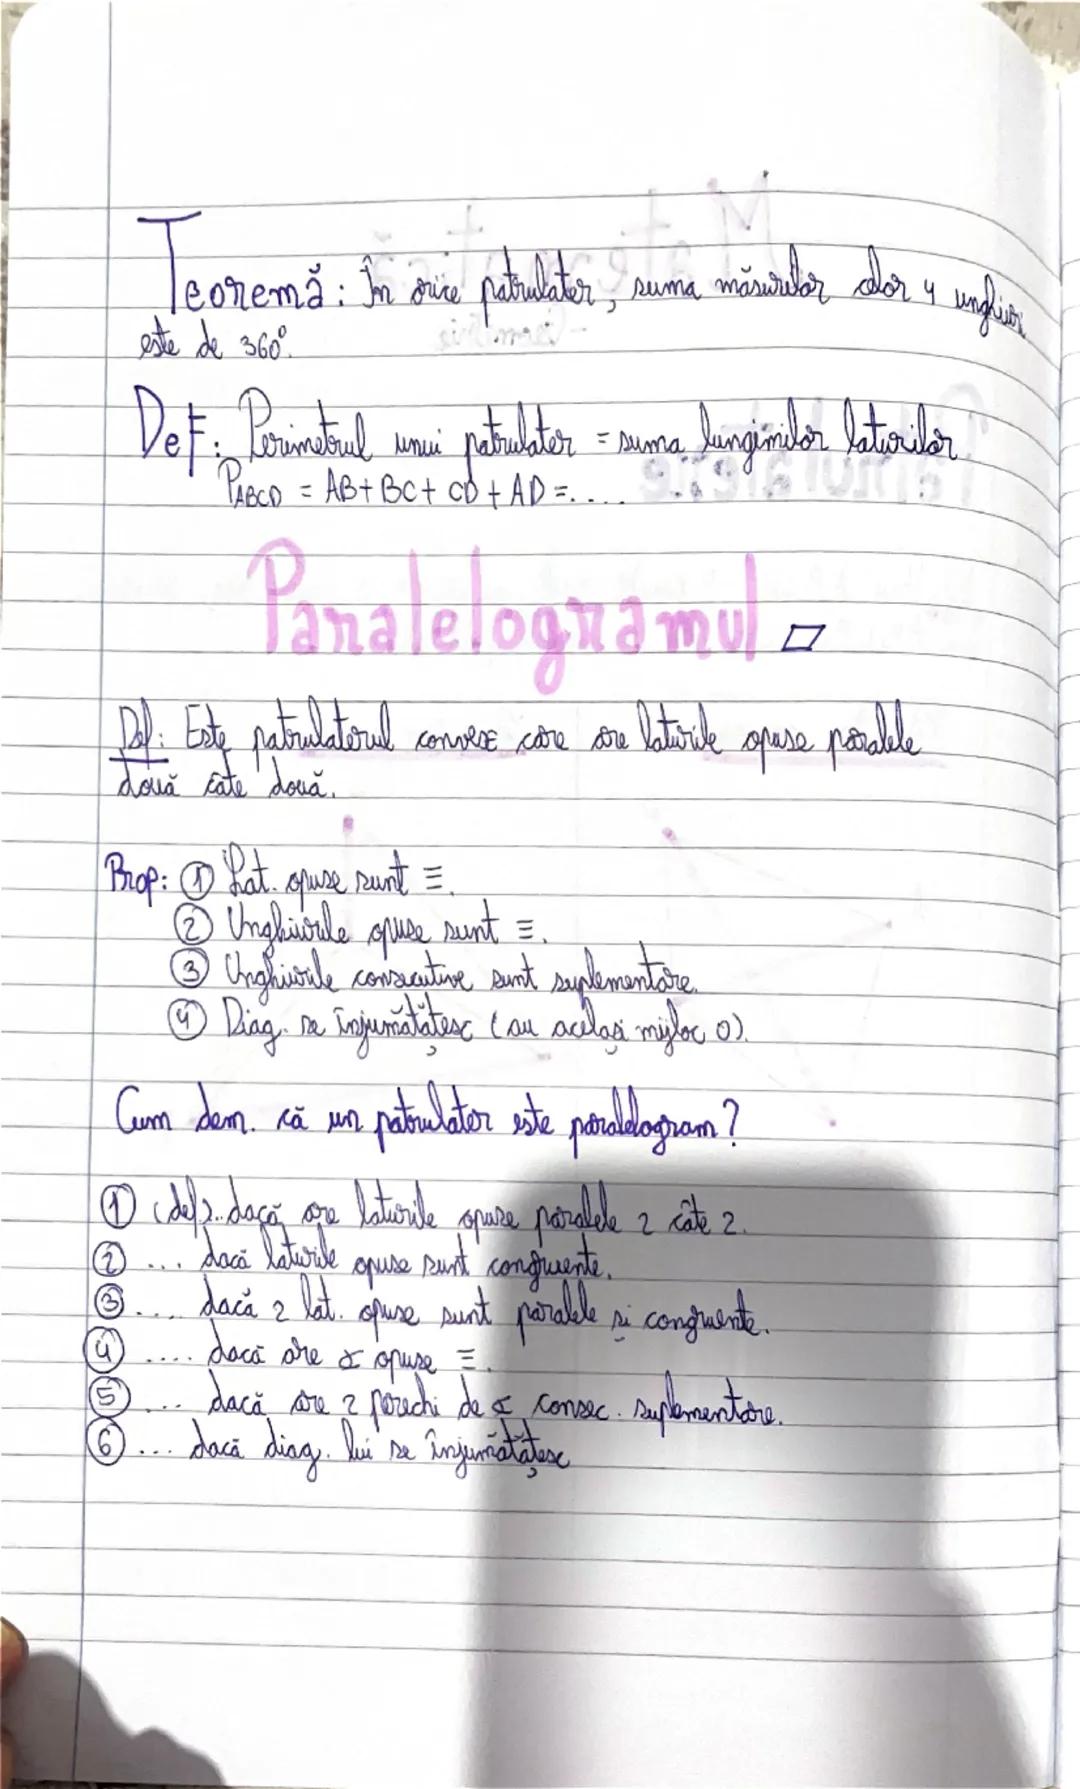 Teoremă: În orice patrulater, suma măsurilor celor 4 unghiuri
este de 360°.
Def: Perimetrul unui patrulater = suma lungimilor laturilor
PABCD = AB+BC+CD+AD=....
Paralelogramul
Def: Este patrulaterul convex care are laturile opuse paralele
două câte două.
Prop: ① Lat. opuse sunt ≡.
② Unghiurile opuse sunt ≡.
③ Unghiurile consecutive sunt suplementare.
④ Diag. se înjumătățesc (au același mijloc O).
Cum dem. că un patrulater este paralelogram?
① (def)..dacă are laturile opuse paralele 2 câte 2.
② ... dacă laturile opuse sunt congruente.
③ .... dacă 2 lat. opuse sunt paralele și congruente.
④ .... dacă are ∢ opuse ≡.
⑤ ... dacă are 2 perechi de ∢ consec. suplementare.
⑥ ... dacă diag. lui se înjumătățesc